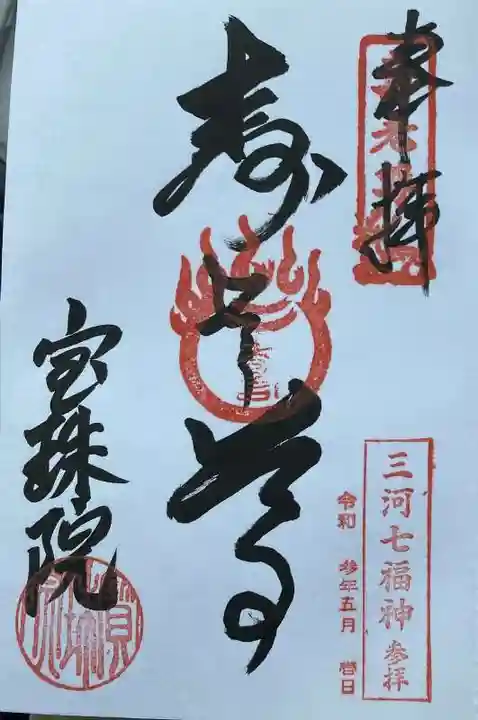 奉拝
寿老尊
宝珠院
三河七福神 参拝
令和 参年五月 日
寳珠院